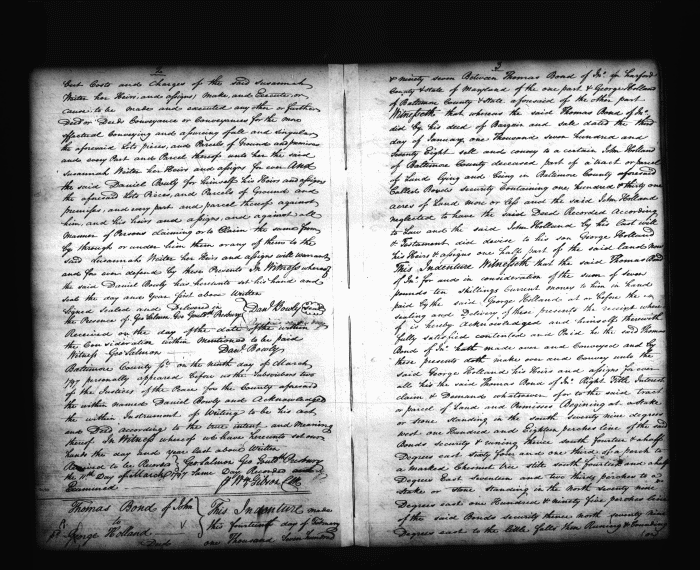 2
best Costs and Charges of the said Susannah
Witer her Heirs and assigns make and Execute or
cause to be made and executed any other or further
Deed or Deeds Conveyance or Conveyances for the more
effectual Conveying and assuring all and singular
the aforesaid Lots pieces and Parcels of Ground and premises
and every Part and Parcel thereof unto her the said
Susannah Witer her Heirs and assigns for ever And
the said Daniel Bowly for himself his Heirs and assigns
the aforesaid Lots Pieces and Parcels of Ground and
premises and every part and parcel thereof against
him and his heirs and assigns and against all
Manner of Persons claiming or to Claim the same from
by through or under him them or any of them to the
said Susannah Witer her Heirs and assigns will warrant
and for ever defend by these Presents In Witness whereof
the said Daniel Bowly has hereunto set his hand and
seal the day and year first above Written
Signed sealed and Delivered in
the Presence of Geo Salmon
Danl Bowly
Received on the day of the date of the within
the Consideration within Mentioned to be paid
Witness Geo Salmon Danl Bowly
Baltimore County Sc. on the ninth day of March
1797 personally appeared before us the Subscribers two
of the Justices of the Peace for the County aforesaid
the within named Daniel Bowly and Acknowledged
the within Instrument of Writing to be his act
and Deed according to the true intent and Meaning
thereof In Witness whereof we have hereunto set our
hands the day and year last above Written
Received to be Recorded Geo Salmon
the 11th Day of March 1797 Same Day Recorded
Examined
Wm Gibson Clk
Thomas Bond of John
to
George Holland
Deed
This Indenture made
this fourteenth day of February
one Thousand Seven hundred
3
& ninety seven Between Thomas Bond of Jno of Harford
County & State of Maryland of the one part & George Holland
of Baltimore County & State aforesaid of the other part
Witnesseth that whereas the said Thomas Bond of Jno
did by his deed of Bargain and sale dated the third
day of January one Thousand Seven hundred and
Seventy Eight sell and convey to a certain John Holland
of Baltimore County deceased part of a tract or parcel
of Land lying and being in Baltimore County aforesaid
Called Bonds security Containing one hundred & thirty one
acres of Land more or less and the said John Holland
neglected to have the said Deed Recorded According
to Law and the said John Holland by his last will
& Testament did devise to his son George Holland
his Heirs & assigns one half part of the said land Now
This Indenture Witnesseth that the said Thomas Bond
of Jno for and in consideration of the sum of seven
pounds ten shillings Current money to him in hand
paid by the said George Holland at or before the
sealing and Delivery of these presents the receipt where
of is hereby acknowledged and himself therewith
fully satisfied contented and Paid he the said Thomas
Bond of Jno hath made over and Conveyed and by
these presents doth make over and Convey unto the
said George Holland his Heirs and assigns for ever
all his the said Thomas Bond of Jno Right Title Interest
claim & Demand whatsoever for to the said tract
or parcel of Land and Premises Begining at a Stake
or stone standing in the south seventy nine degrees
west one Hundred and Eighteen perches line of the said
Bonds security & runing thence south fourteen & a half
Degrees east sixty four and one third of a perch to
a marked Chesnut tree still south fourteen and a half
Degrees East seventeen and two thirds perches to a
Stake or Stone standing in the North seventy nine
Degrees east one Hundred & ninety five perches line
of the said Bonds security thence north seventy nine
Degrees east to the little falls then Runing & bounding
on